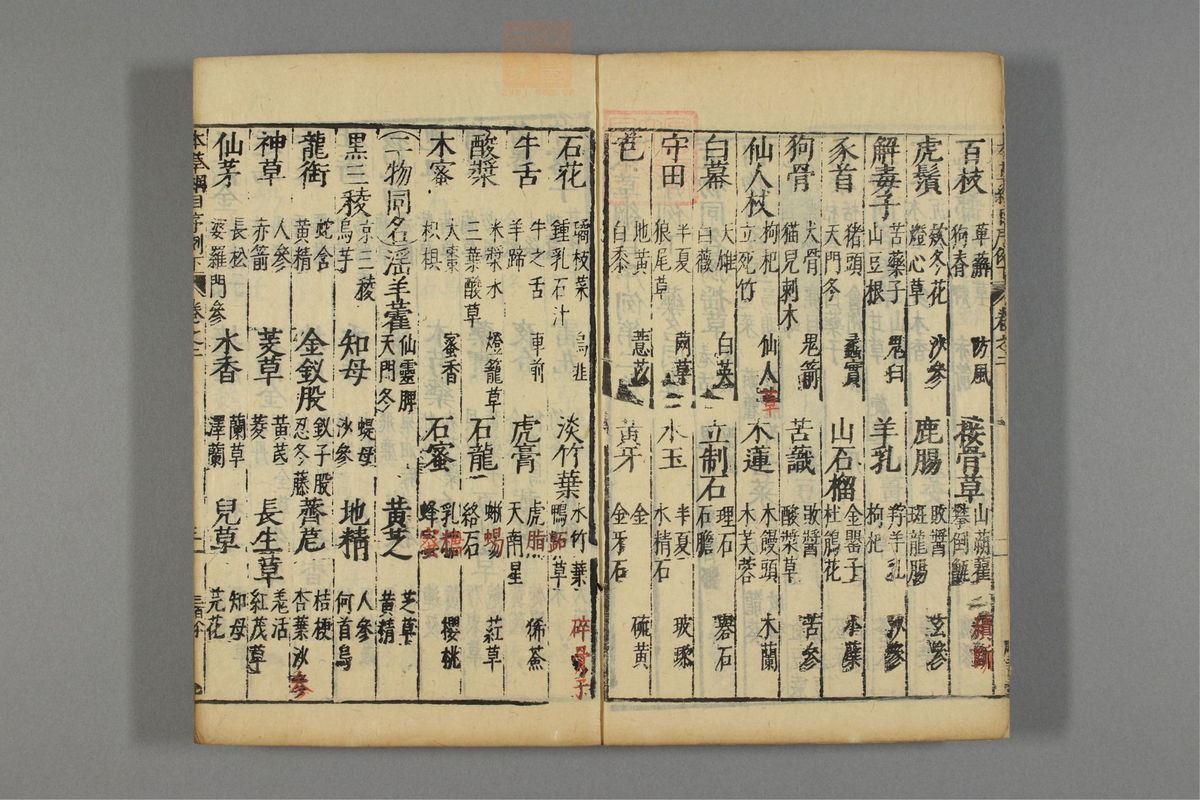 百枝 萆薢 狗脊 防風
椄骨草 山蒴藋 攀倒甑 續斷
虎鬚 欵冬花 燈心草 沙參
鹿腸 敗醬 斑龍腸 玄參
解毒子 苦藥子 山豆根 鬼臼
羊乳 羚羊乳 枸杞 沙參
豕首 猪頭 天門冬 蠡實
山石榴 金罌子 杜鵑花 小蘗
狗骨 犬骨 猫兒刺木 鬼箭
苦蘵 敗醬 酸漿草 苦參
仙人杖 枸杞 立死竹 仙人草
木蓮 木饅頭 木芙蓉 木蘭
白幕 天雄 白薇 白英
立制石 理石 石膽 礜石
守田 半夏 狼尾草 䒽草
水玉 半夏 水精石 玻瓈
芑 地黃 白黍 薏苡
黃牙 金 金牙石 硫黃
石花 璚枝菜 鍾乳石汁 烏韭
淡竹葉 水竹葉 鴨跖草 碎骨子
牛舌 牛之舌 羊蹄 車前
虎膏 虎脂 天南星 豨薟
酸漿 米漿水 三葉酸草 燈籠草
石龍 蜥蜴 絡石 葒草
木蜜 大棗 枳椇 蜜香
石蜜 乳糖 蜂蜜 櫻桃
一物同名 淫羊藿 仙靈脾 天門冬
黑三稜 京三稜 烏芋
知母 蝭母 沙參
黃芝 芝草 黃精
龍銜 蛇含 黃精
金釵股 釵子股 忍冬藤
地精 人參 何首烏
神草 人參 赤箭
萎草 黃芪 菱
薺苨 桔梗 杏葉沙參
長生草 羌活 紅茂草
仙茅 長松 婆羅門參
水香 蘭草 澤蘭
兒草 知母 芫花
本草綱目序例下 卷之二